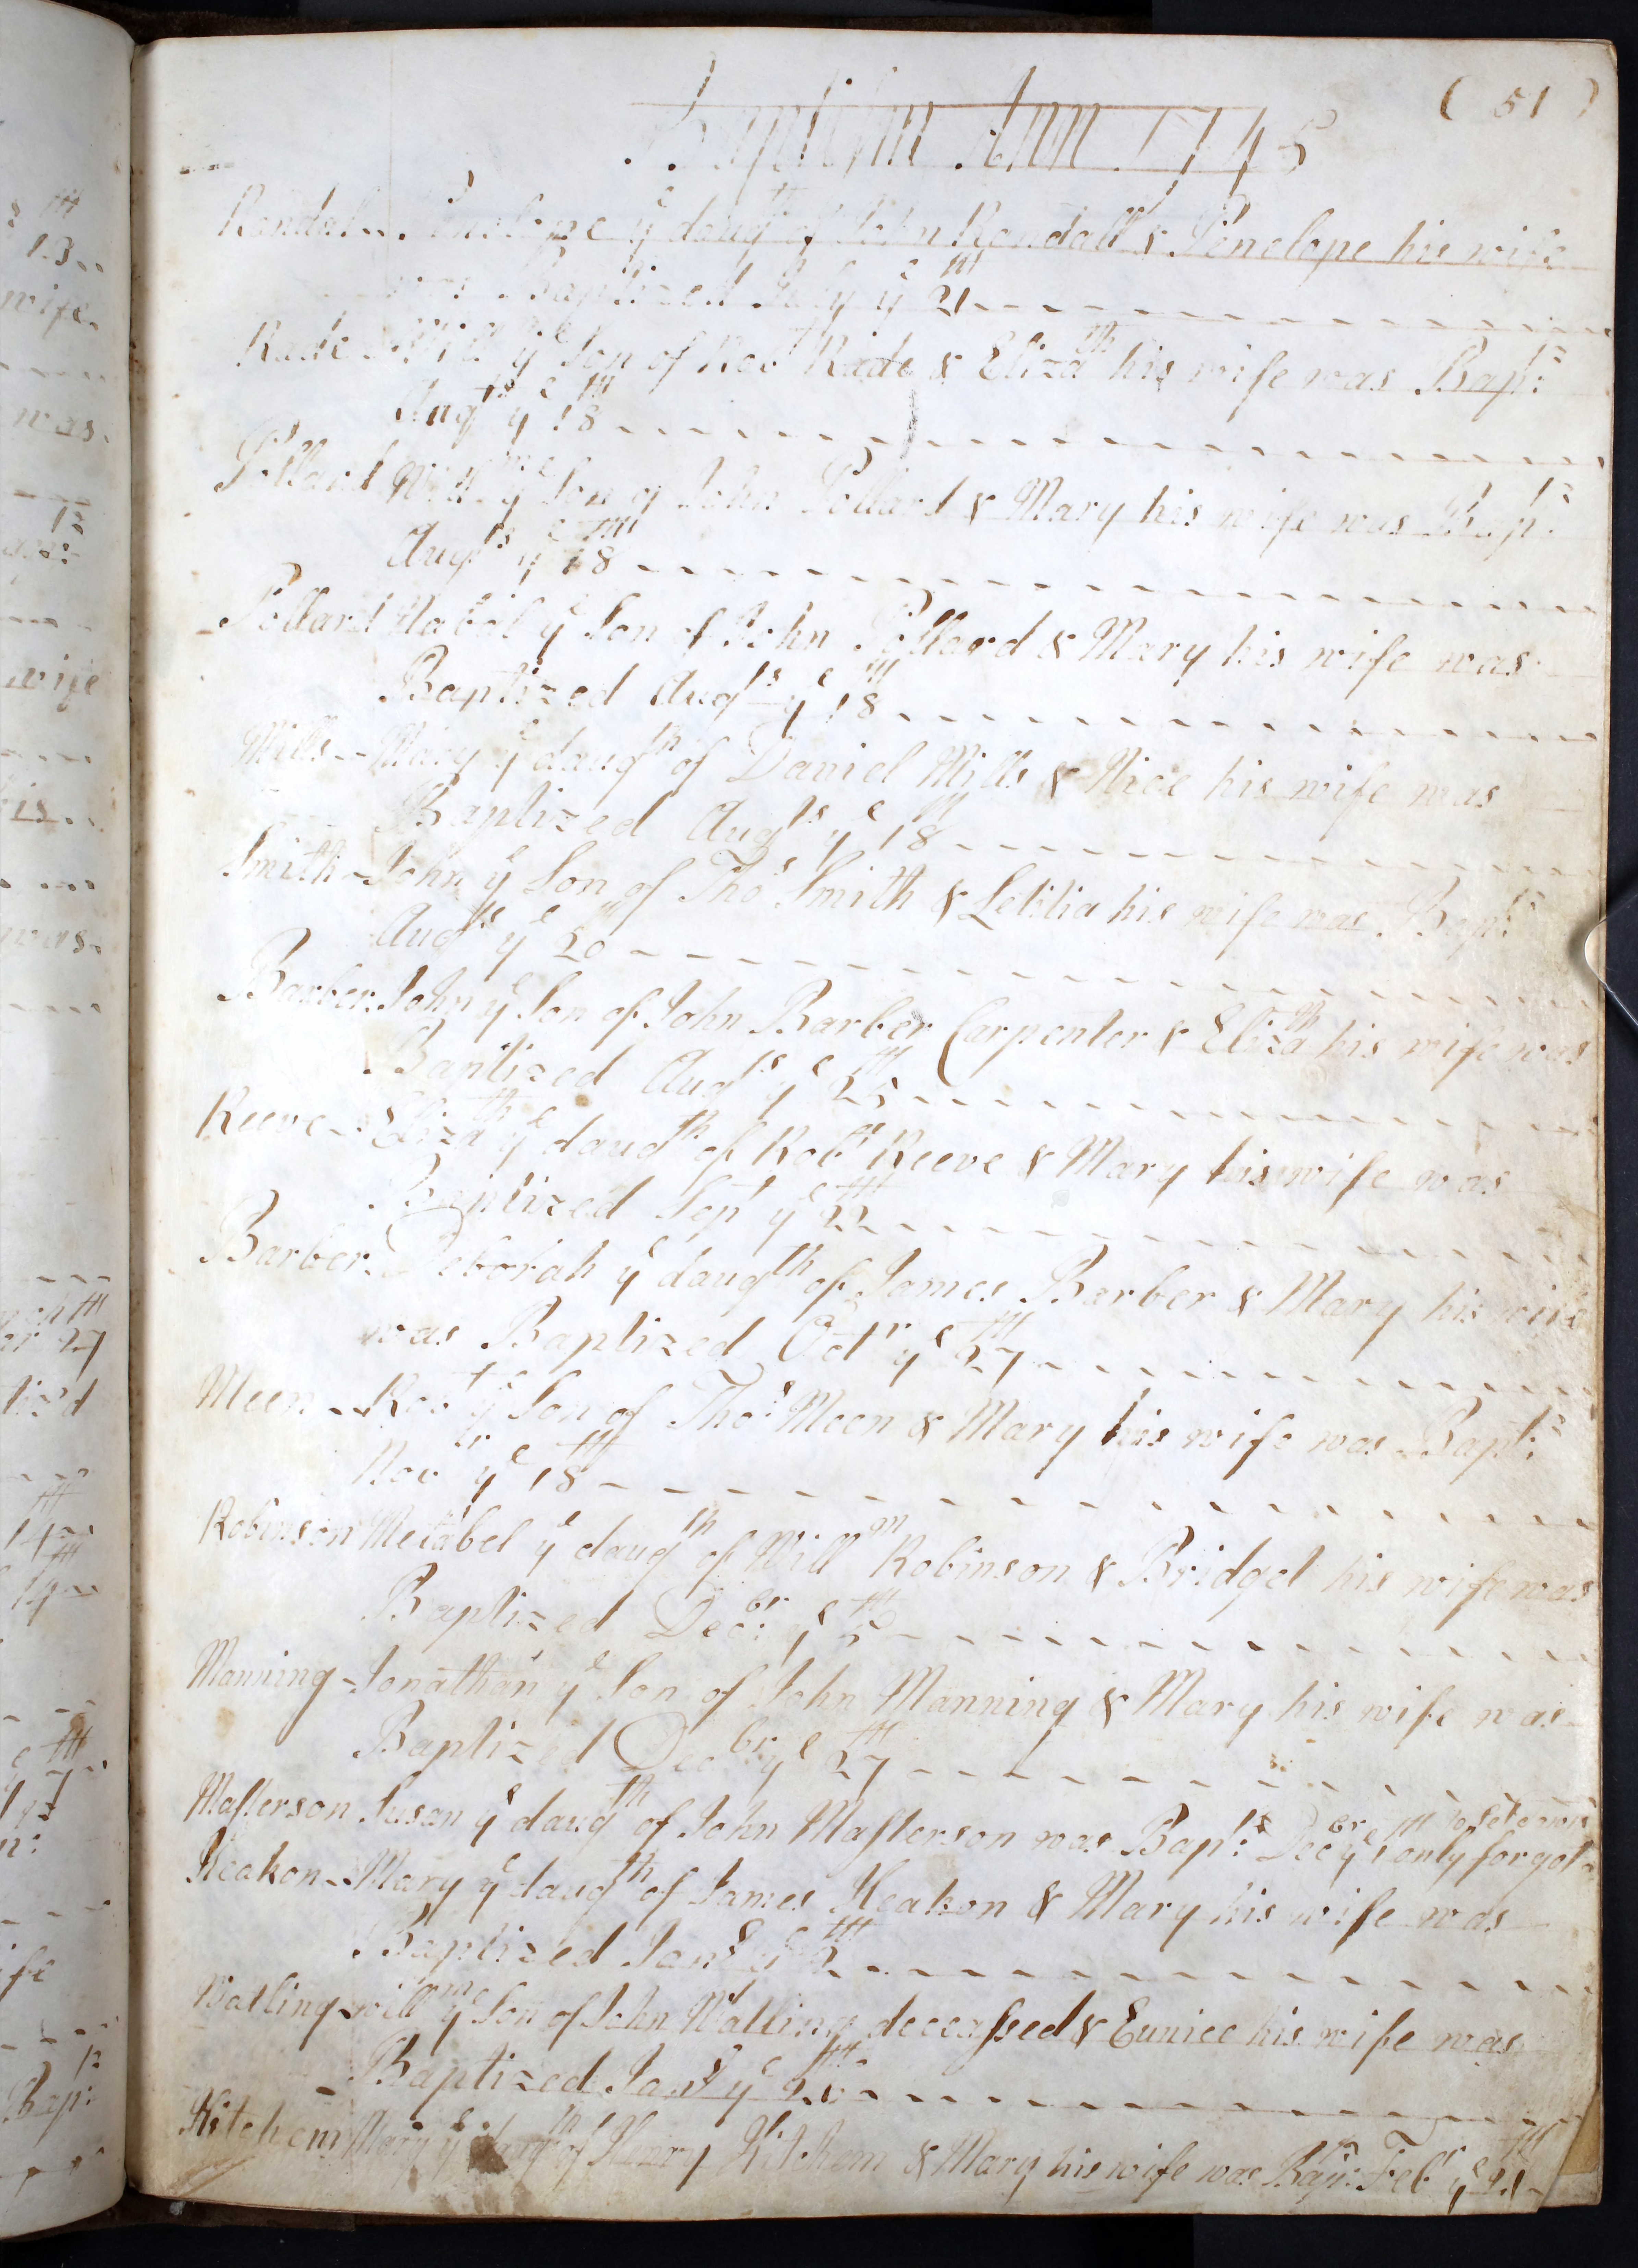 ( 51 )
Baptism Ann 1745
Randal - Penelope yᵉ daugᵗʰ of John Randall & Penelope his wife
was Baptized July yᵉ 21
Rade - Willᵐ yᵉ Son of Robᵗ Rade & Elizaᵗʰ his wife was Bapᵗ:
Augᵗˢ yᵉ 18ᵗʰ
Pollard Willᵐ yᵉ Son of John Pollard & Mary his wife was Bapᵗ:
Augᵗˢ yᵉ 18ᵗʰ
Pollard Nabal yᵉ Son of John Pollard & Mary his wife was
Baptized Augᵗˢ yᵉ 18ᵗʰ
Mills - Mary yᵉ daugᵗʰ of Daniel Mills & Nice his wife was
Baptized Augᵗˢ yᵉ 18ᵗʰ
Smith - John yᵉ Son of Thoˢ Smith & Letitia his wife was Bapᵗ:
Augᵗˢ yᵉ 20ᵗʰ
Barber. John yᵉ Son of John Barber Carpenter & Elizaᵗʰ his wife was
Baptized Augᵗˢ yᵉ 25ᵗʰ
Reeve - Elizaᵗʰ yᵉ daugᵗʰ of Robᵗ Reeve & Mary his wife was
Baptized Sepᵗ yᵉ 22ᵗʰ
Barber. Deborah yᵉ daugᵗʰ of James Barber & Mary his wife
was Baptized Octʳ yᵉ 27ᵗʰ
Meen - Robᵗ yᵉ Son of Thoˢ Meen & Mary his wife was Bapᵗ:
Novʳ yᵉ 18ᵗʰ
Robinson Metabel yᵉ daugᵗʰ of Willᵐ Robinson & Bridget his wife was
Baptized Decᵇʳ: yᵉ 5ᵗʰ
Manning - Jonathan yᵉ Son of John Manning & Mary his wife was
Baptized Decᵇʳ yᵉ 27ᵗʰ
Masterson Susan yᵉ daugᵗʰ of John Masterson was Bapᵗ: Decᵇʳ yᵉ 1 only forgot
Keakon - Mary yᵉ daugᵗʰ of James Keakon & Mary his wife was
Baptized Janʸ yᵉ 2ᵗʰ
Watling - willᵐ yᵉ Son of John Watling deceassed & Eunice his wife was
Baptized Janʸ yᵉ
Kitchem Mary yᵉ daugᵗʰ of Henry Kitchem & Mary his wife was Bapᵗ: Febʳ yᵉ 21ᵗʰ